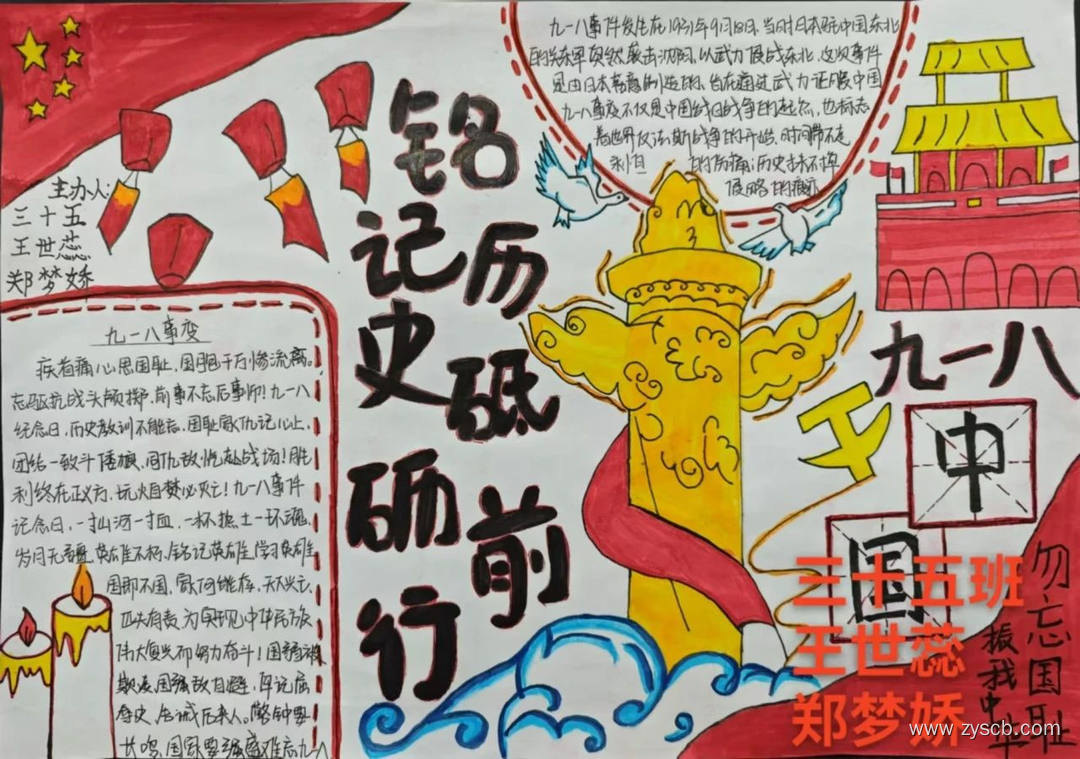 主办人:
三十五
王世蕊
郑梦娇
铭记历史
砥砺前行
九一八事件发生在1931年9月18日,当时日本驻中国东北
的关东军突然袭击沈阳,以武力侵战东北,这次事件
是由日本蓄意制造的,
九一八事变不仅是中国抗日战争的起点,也标志
着世界反法斯战争的开始,时间带不走
的伤痛,历史抹不掉
侵略的痕迹
九一八
中
国
九一八事变
疾首痛心思国耻,国千万惨流离。
抗战头颅掷,前事不忘后事师!九一八
纪念日,历史教训不能忘,国耻家仇记心上,
团结一致斗倭狼,同仇敌忾赴战场!胜
利终在正义方,玩火自焚必灭亡!九一八事件
记念日,一寸山河一寸血,一杯热土一环魂,
岁月无声,英雄不朽,铭记英雄学习英雄
国即不国,家何能存,天下兴亡,
匹夫有责,为实现中华民族
伟大复兴而努力奋斗!国弱被
欺凌国强敌自避,牢记屈
辱史,告诫后来人。警钟要
长鸣,国家要强盛难忘九一八
勿忘国耻
振我中华
三十五班
王世蕊
郑梦娇
www.zyscb.com